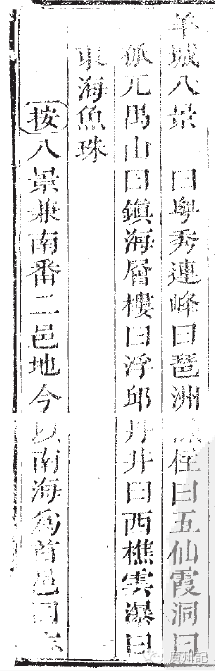 羊城八景 曰粵秀連峰曰琵洲柱曰五仙霞洞曰
孤兀禺山曰鎮海層樓曰浮邱丹井曰西樵雲瀑曰
東海魚珠
按八景兼南番二邑地今以南海為首邑